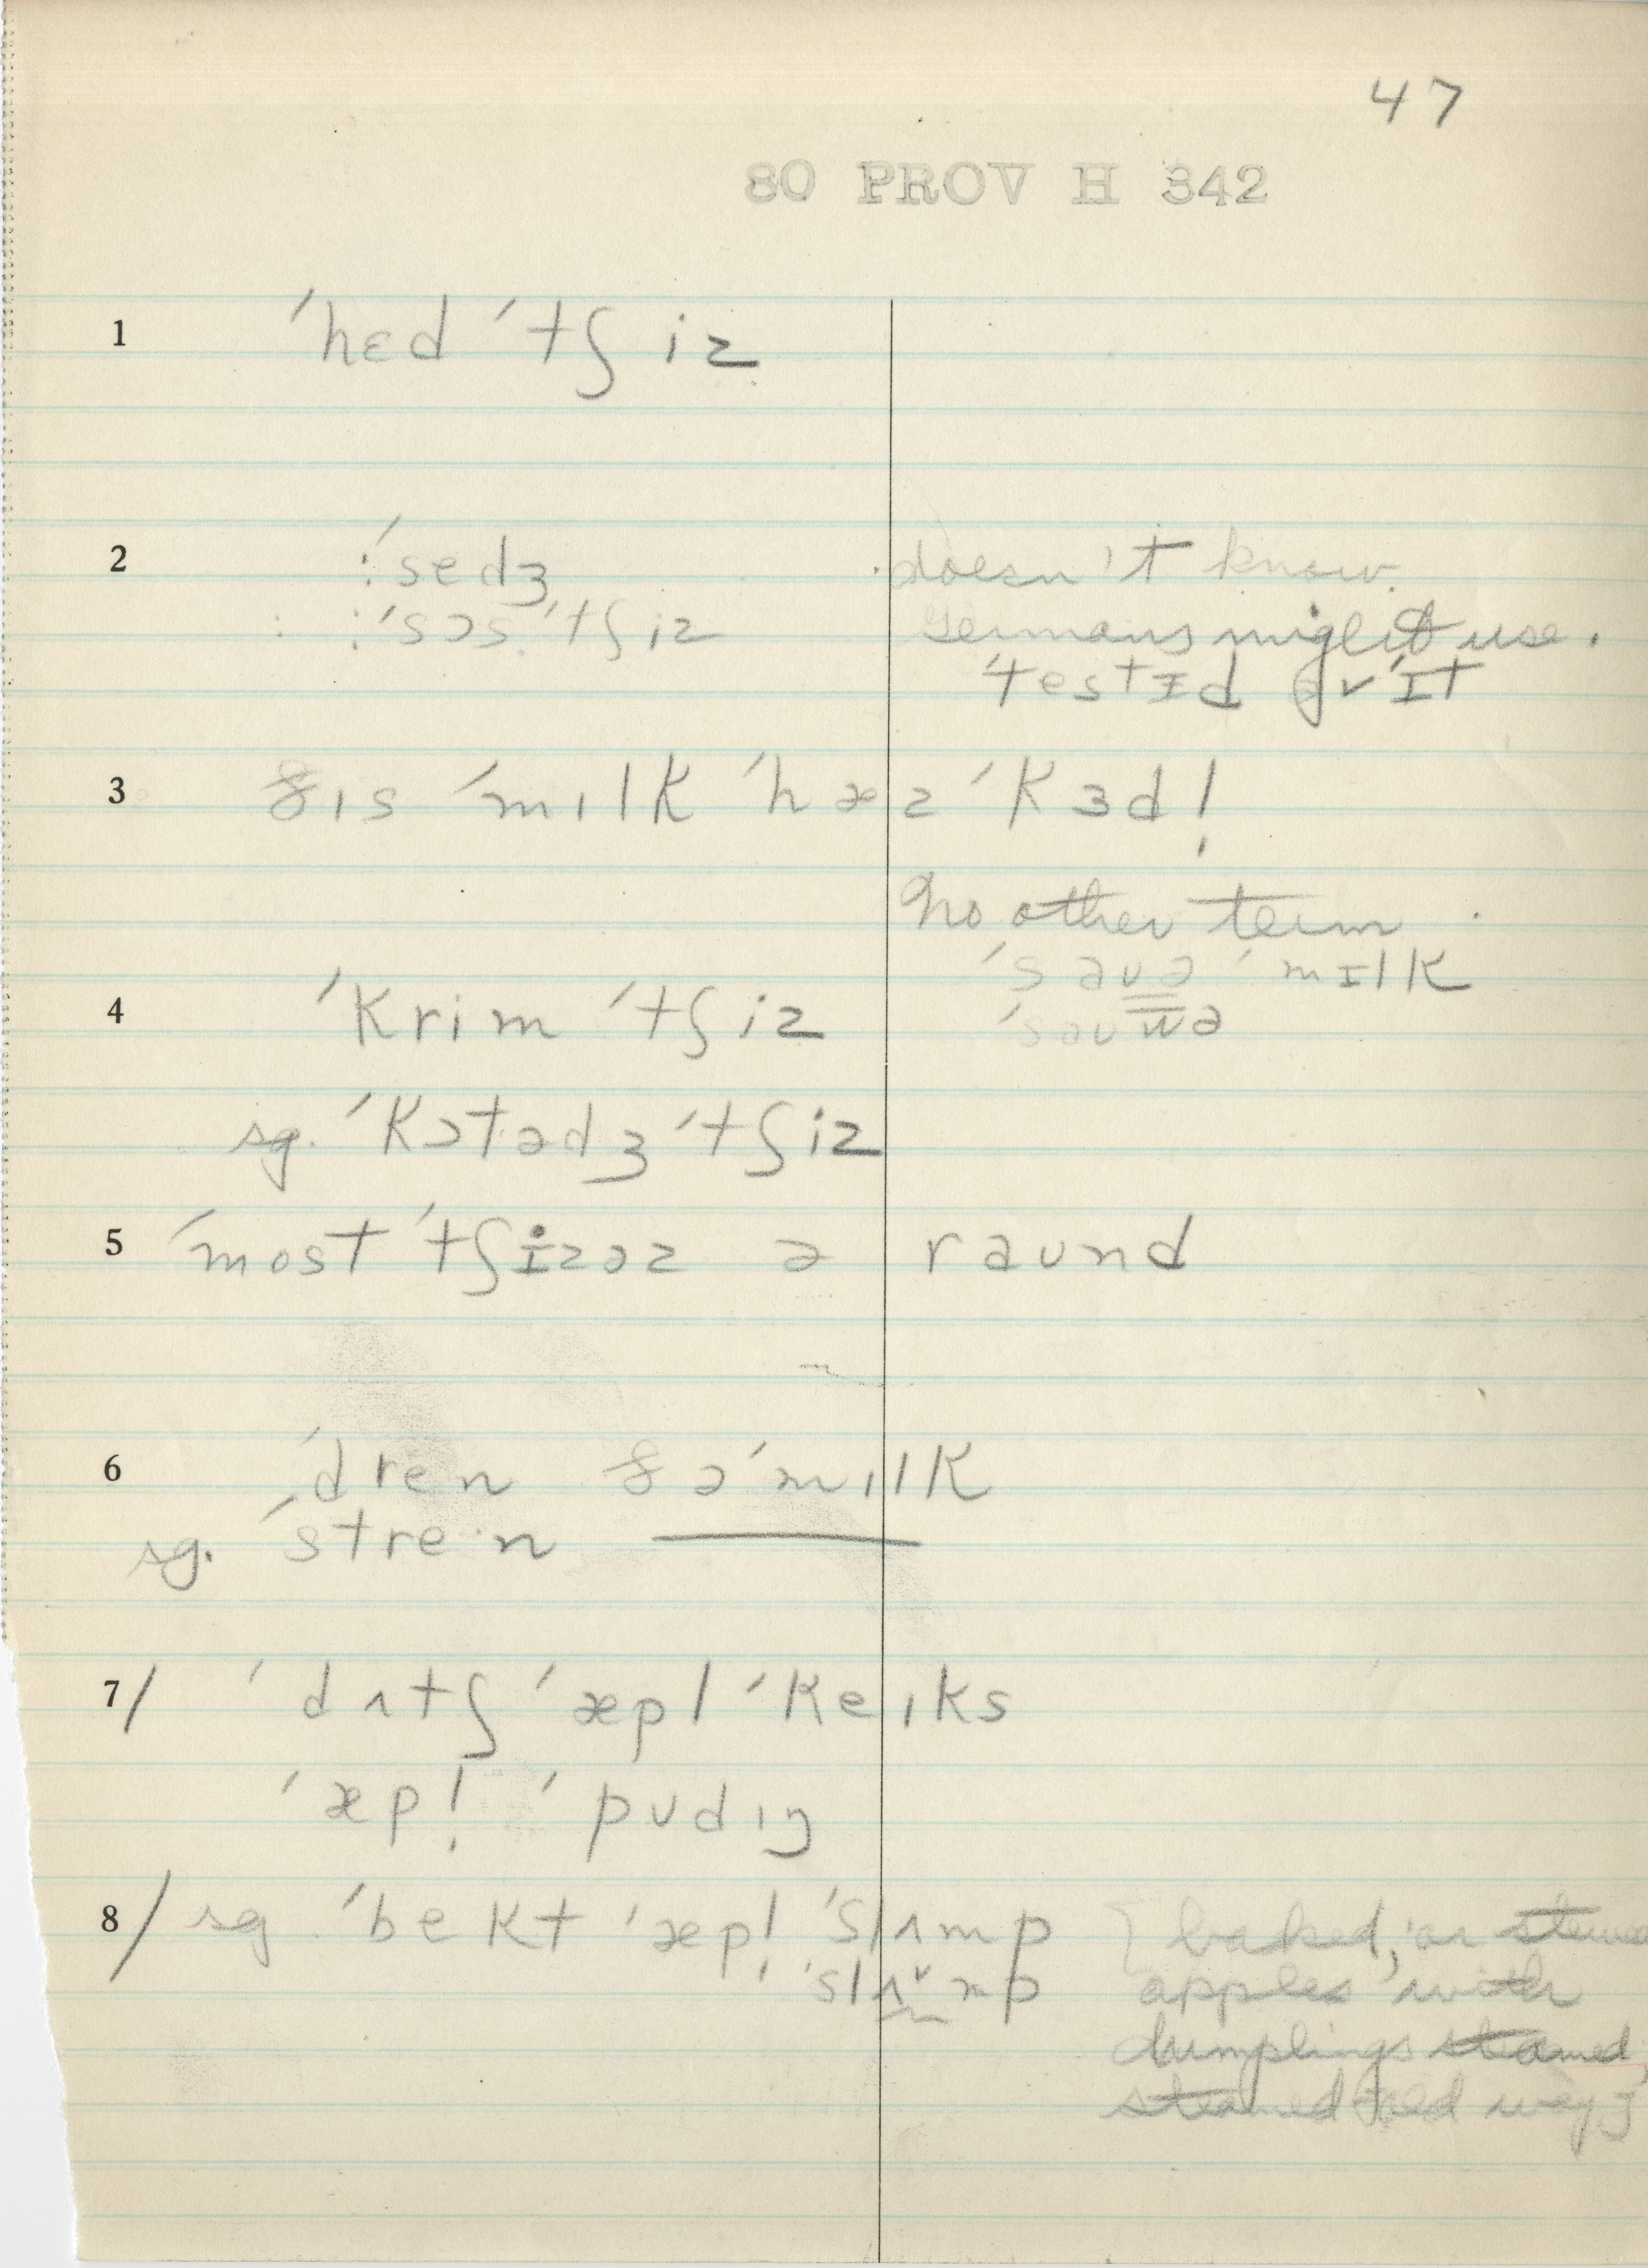 47
80 PROV H 342
1 ˈhɛd ˈtʃiz
2 :ˈsedʒ doesn't know.
:ˈsɔs ˈtʃiz Germans might use.
ˈtestɪd əv ˈɪt
3 ðɪs ˈmɪlk ˈhæz ˈkɜd!
No other term
ˈsaʊə ˈmɪlk
4 ˈkrim ˈtʃiz ˈsaʊwə
sg. ˈkɔtədʒ ˈtʃiz
5 ˈmost ˈtʃizəz ə raʊnd
6 ˈdren ðə ˈmɪlk
sg. ˈstre·n ———
7/ ˈdʌtʃ ˈæpl ˈkeɪks
ˈæpl̩ ˈpʊdɪŋ
8/ sg. ˈbekt ˈæpl̩ ˈslʌmp [baked, or stewed
ˈslʌ˅mp apples with
dumplings steamed,
steamed old way]